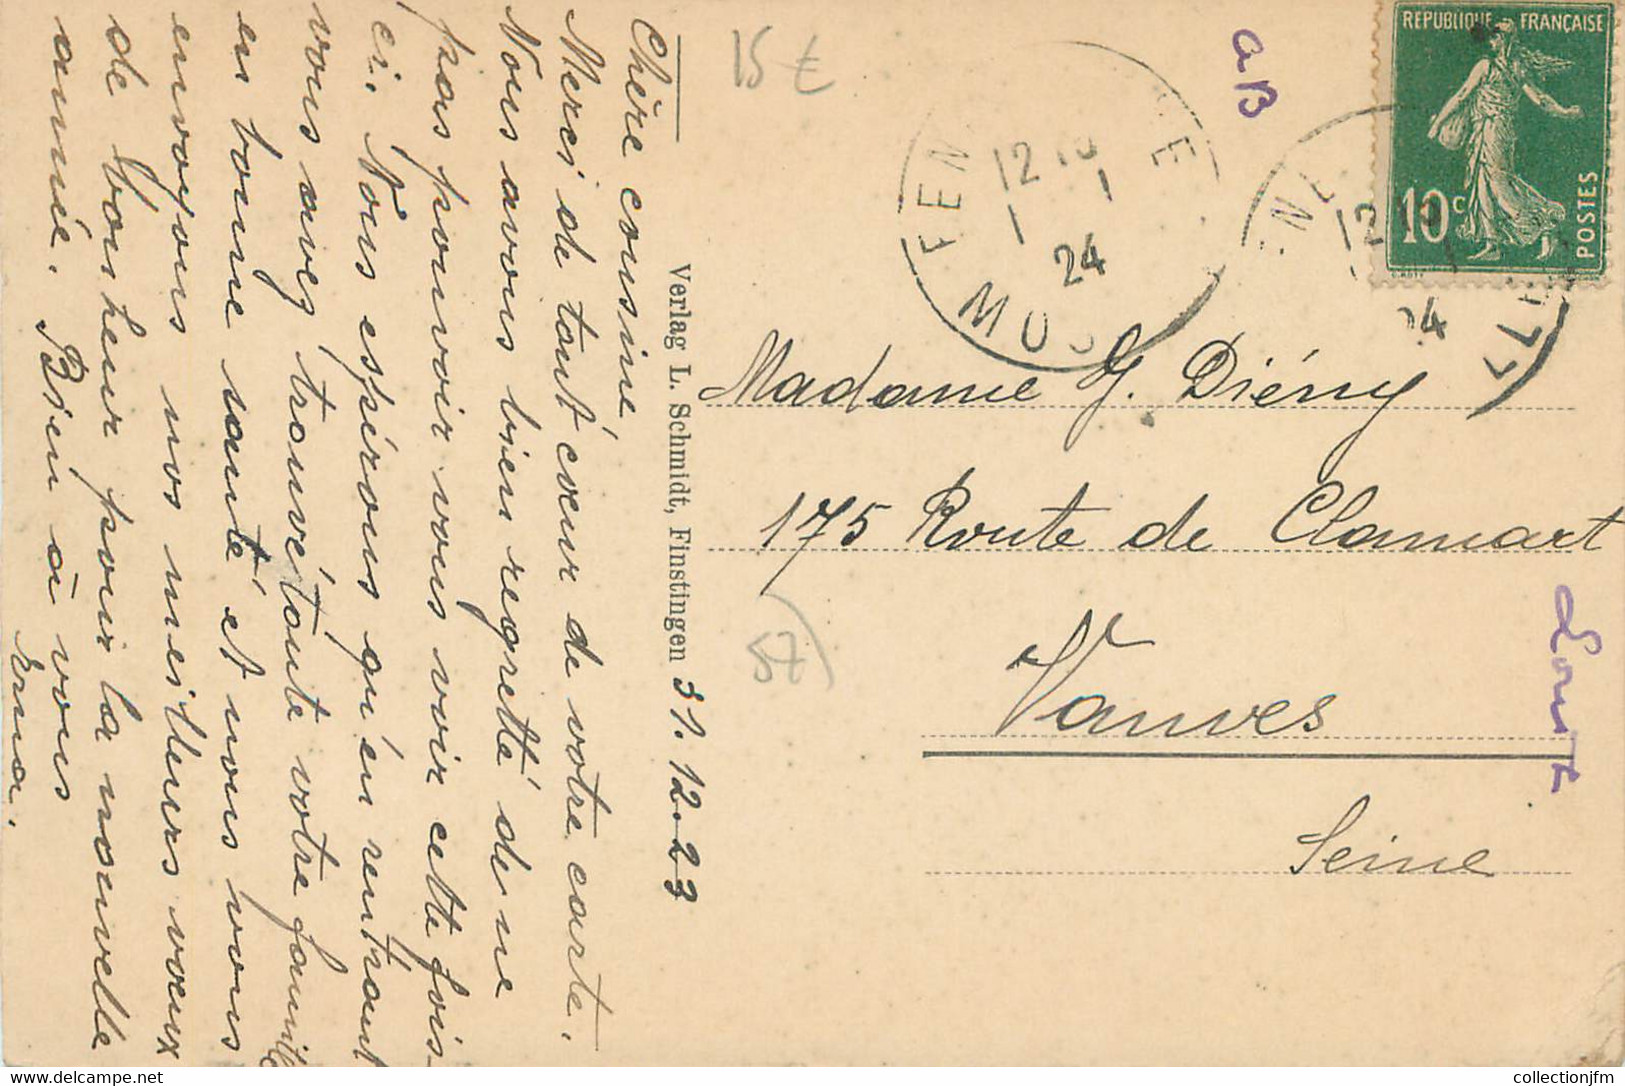 Chère cousine
Merci de tout coeur de votre carte.
Nous avons bien regretté de ne
pas pouvoir vous voir cette fois-
ci. Nous espérons qu'en rentrant
vous avez trouvé toute votre famille
en bonne santé et nous vous
envoyons nos meilleurs vœux
de bonheur pour la nouvelle
année. Bien à vous
Erna.
Verlag L. Schmidt, Finstingen
31.12.23
15 €
57)
aB
REPUBLIQUE FRANÇAISE
10c
POSTES
FEN
MOS
E
12 10
1 1
24
Madame J. Diény
175 Route de Clamart
Vanves
Seine
collectionjfm